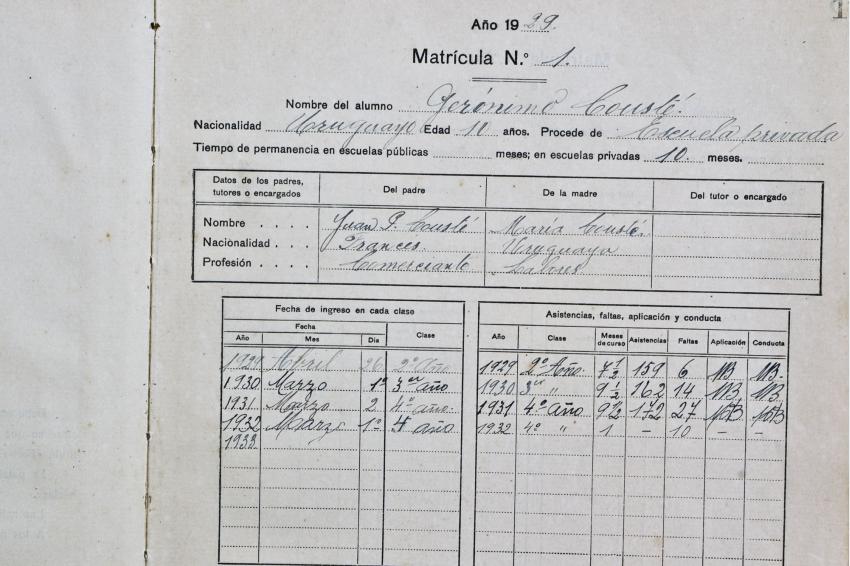 Año 1929.
Matrícula N.° 1.
Nombre del alumno Gerónimo Cousté.
Nacionalidad Uruguayo Edad 10 años. Procede de Escuela privada
Tiempo de permanencia en escuelas públicas meses; en escuelas privadas 10 meses.
Datos de los padres, tutores o encargados Del padre De la madre Del tutor o encargado
Nombre . . . . Juan P. Cousté María Cousté.
Nacionalidad . . . . Frances. Uruguaya
Profesión . . . . Comerciante Labores
Fecha de ingreso en cada clase
Fecha Clase
Año Mes Día
1929 Abril 26 2º Año
1930 Marzo 1º 3er año
1931 Marzo 2 4º año.
1932 Marzo 1º 4 año
1933
Asistencias, faltas, aplicación y conducta
Año Clase Meses de curso Asistencias Faltas Aplicación Conducta
1929 2º Año 7 1/2 159 6 MB MB.
1930 3er " 9 1/2 162 14 MB MB
1931 4º año 9 1/2 172 27
1932 4º " 1 - 10 - -